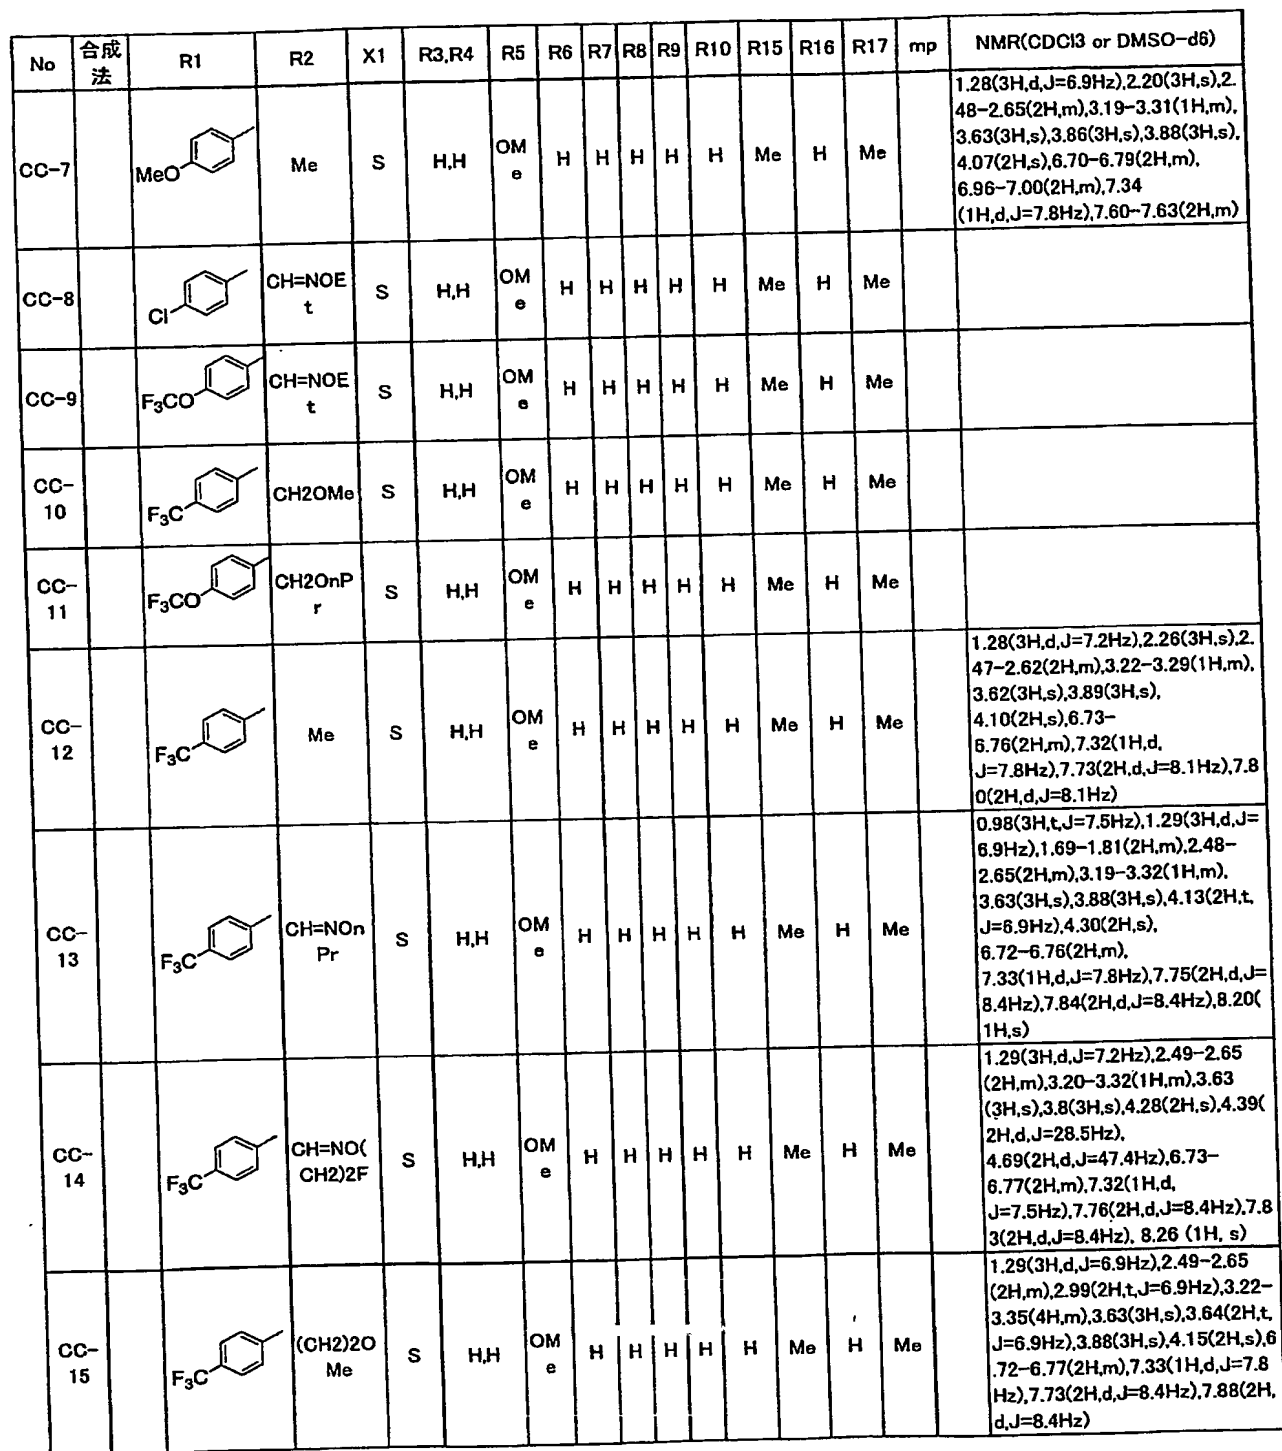 No 合成法 R1 R2 X1 R3,R4 R5 R6 R7 R8 R9 R10 R15 R16 R17 mp NMR(CDCl3 or DMSO-d6)
CC-7 MeO Me S H,H OMe H H H H H Me H Me
1.28(3H,d,J=6.9Hz),2.20(3H,s),2.
48-2.65(2H,m),3.19-3.31(1H,m),
3.63(3H,s),3.86(3H,s),3.88(3H,s),
4.07(2H,s),6.70-6.79(2H,m),
6.96-7.00(2H,m),7.34
(1H,d,J=7.8Hz),7.60-7.63(2H,m)
CC-8 Cl CH=NOEt S H,H OMe H H H H H Me H Me
CC-9 F3CO CH=NOEt S H,H OMe H H H H H Me H Me
CC-10 F3C CH2OMe S H,H OMe H H H H H Me H Me
CC-11 F3CO CH2OnPr S H,H OMe H H H H H Me H Me
CC-12 F3C Me S H,H OMe H H H H H Me H Me
1.28(3H,d,J=7.2Hz),2.26(3H,s),2.
47-2.62(2H,m),3.22-3.29(1H,m),
3.62(3H,s),3.89(3H,s),
4.10(2H,s),6.73-
6.76(2H,m),7.32(1H,d,
J=7.8Hz),7.73(2H,d,J=8.1Hz),7.8
0(2H,d,J=8.1Hz)
CC-13 F3C CH=NOnPr S H,H OMe H H H H H Me H Me
0.98(3H,t,J=7.5Hz),1.29(3H,d,J=
6.9Hz),1.69-1.81(2H,m),2.48-
2.65(2H,m),3.19-3.32(1H,m),
3.63(3H,s),3.88(3H,s),4.13(2H,t,
J=6.9Hz),4.30(2H,s),
6.72-6.76(2H,m),
7.33(1H,d,J=7.8Hz),7.75(2H,d,J=
8.4Hz),7.84(2H,d,J=8.4Hz),8.20(
1H,s)
CC-14 F3C CH=NO(CH2)2F S H,H OMe H H H H H Me H Me
1.29(3H,d,J=7.2Hz),2.49-2.65
(2H,m),3.20-3.32(1H,m),3.63
(3H,s),3.8(3H,s),4.28(2H,s),4.39(
2H,d,J=28.5Hz),
4.69(2H,d,J=47.4Hz),6.73-
6.77(2H,m),7.32(1H,d,
J=7.5Hz),7.76(2H,d,J=8.4Hz),7.8
3(2H,d,J=8.4Hz), 8.26 (1H, s)
CC-15 F3C (CH2)2OMe S H,H OMe H H H H H Me H Me
1.29(3H,d,J=6.9Hz),2.49-2.65
(2H,m),2.99(2H,t,J=6.9Hz),3.22-
3.35(4H,m),3.63(3H,s),3.64(2H,t,
J=6.9Hz),3.88(3H,s),4.15(2H,s),6
.72-6.77(2H,m),7.33(1H,d,J=7.8
Hz),7.73(2H,d,J=8.4Hz),7.88(2H,
d,J=8.4Hz)